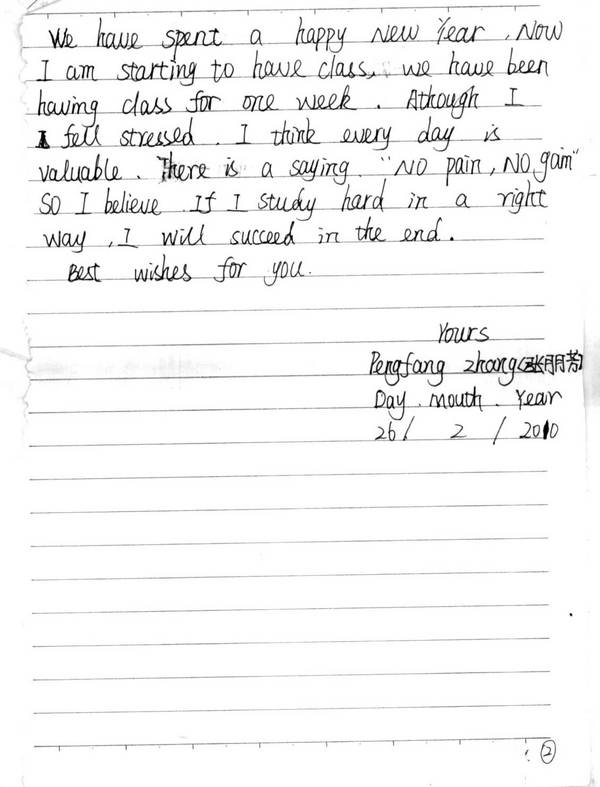 We have spent a happy New Year. Now
I am starting to have class, we have been
having class for one week. Athough I
fell stressed. I think every day is
valuable. There is a saying. "NO pain, NO gain"
SO I believe If I study hard in a right
way, I will succeed in the end.
Best wishes for you.
Yours
Pengfang zhang(张朋芳)
Day. Mouth. Year
26/ 2 / 2010
②